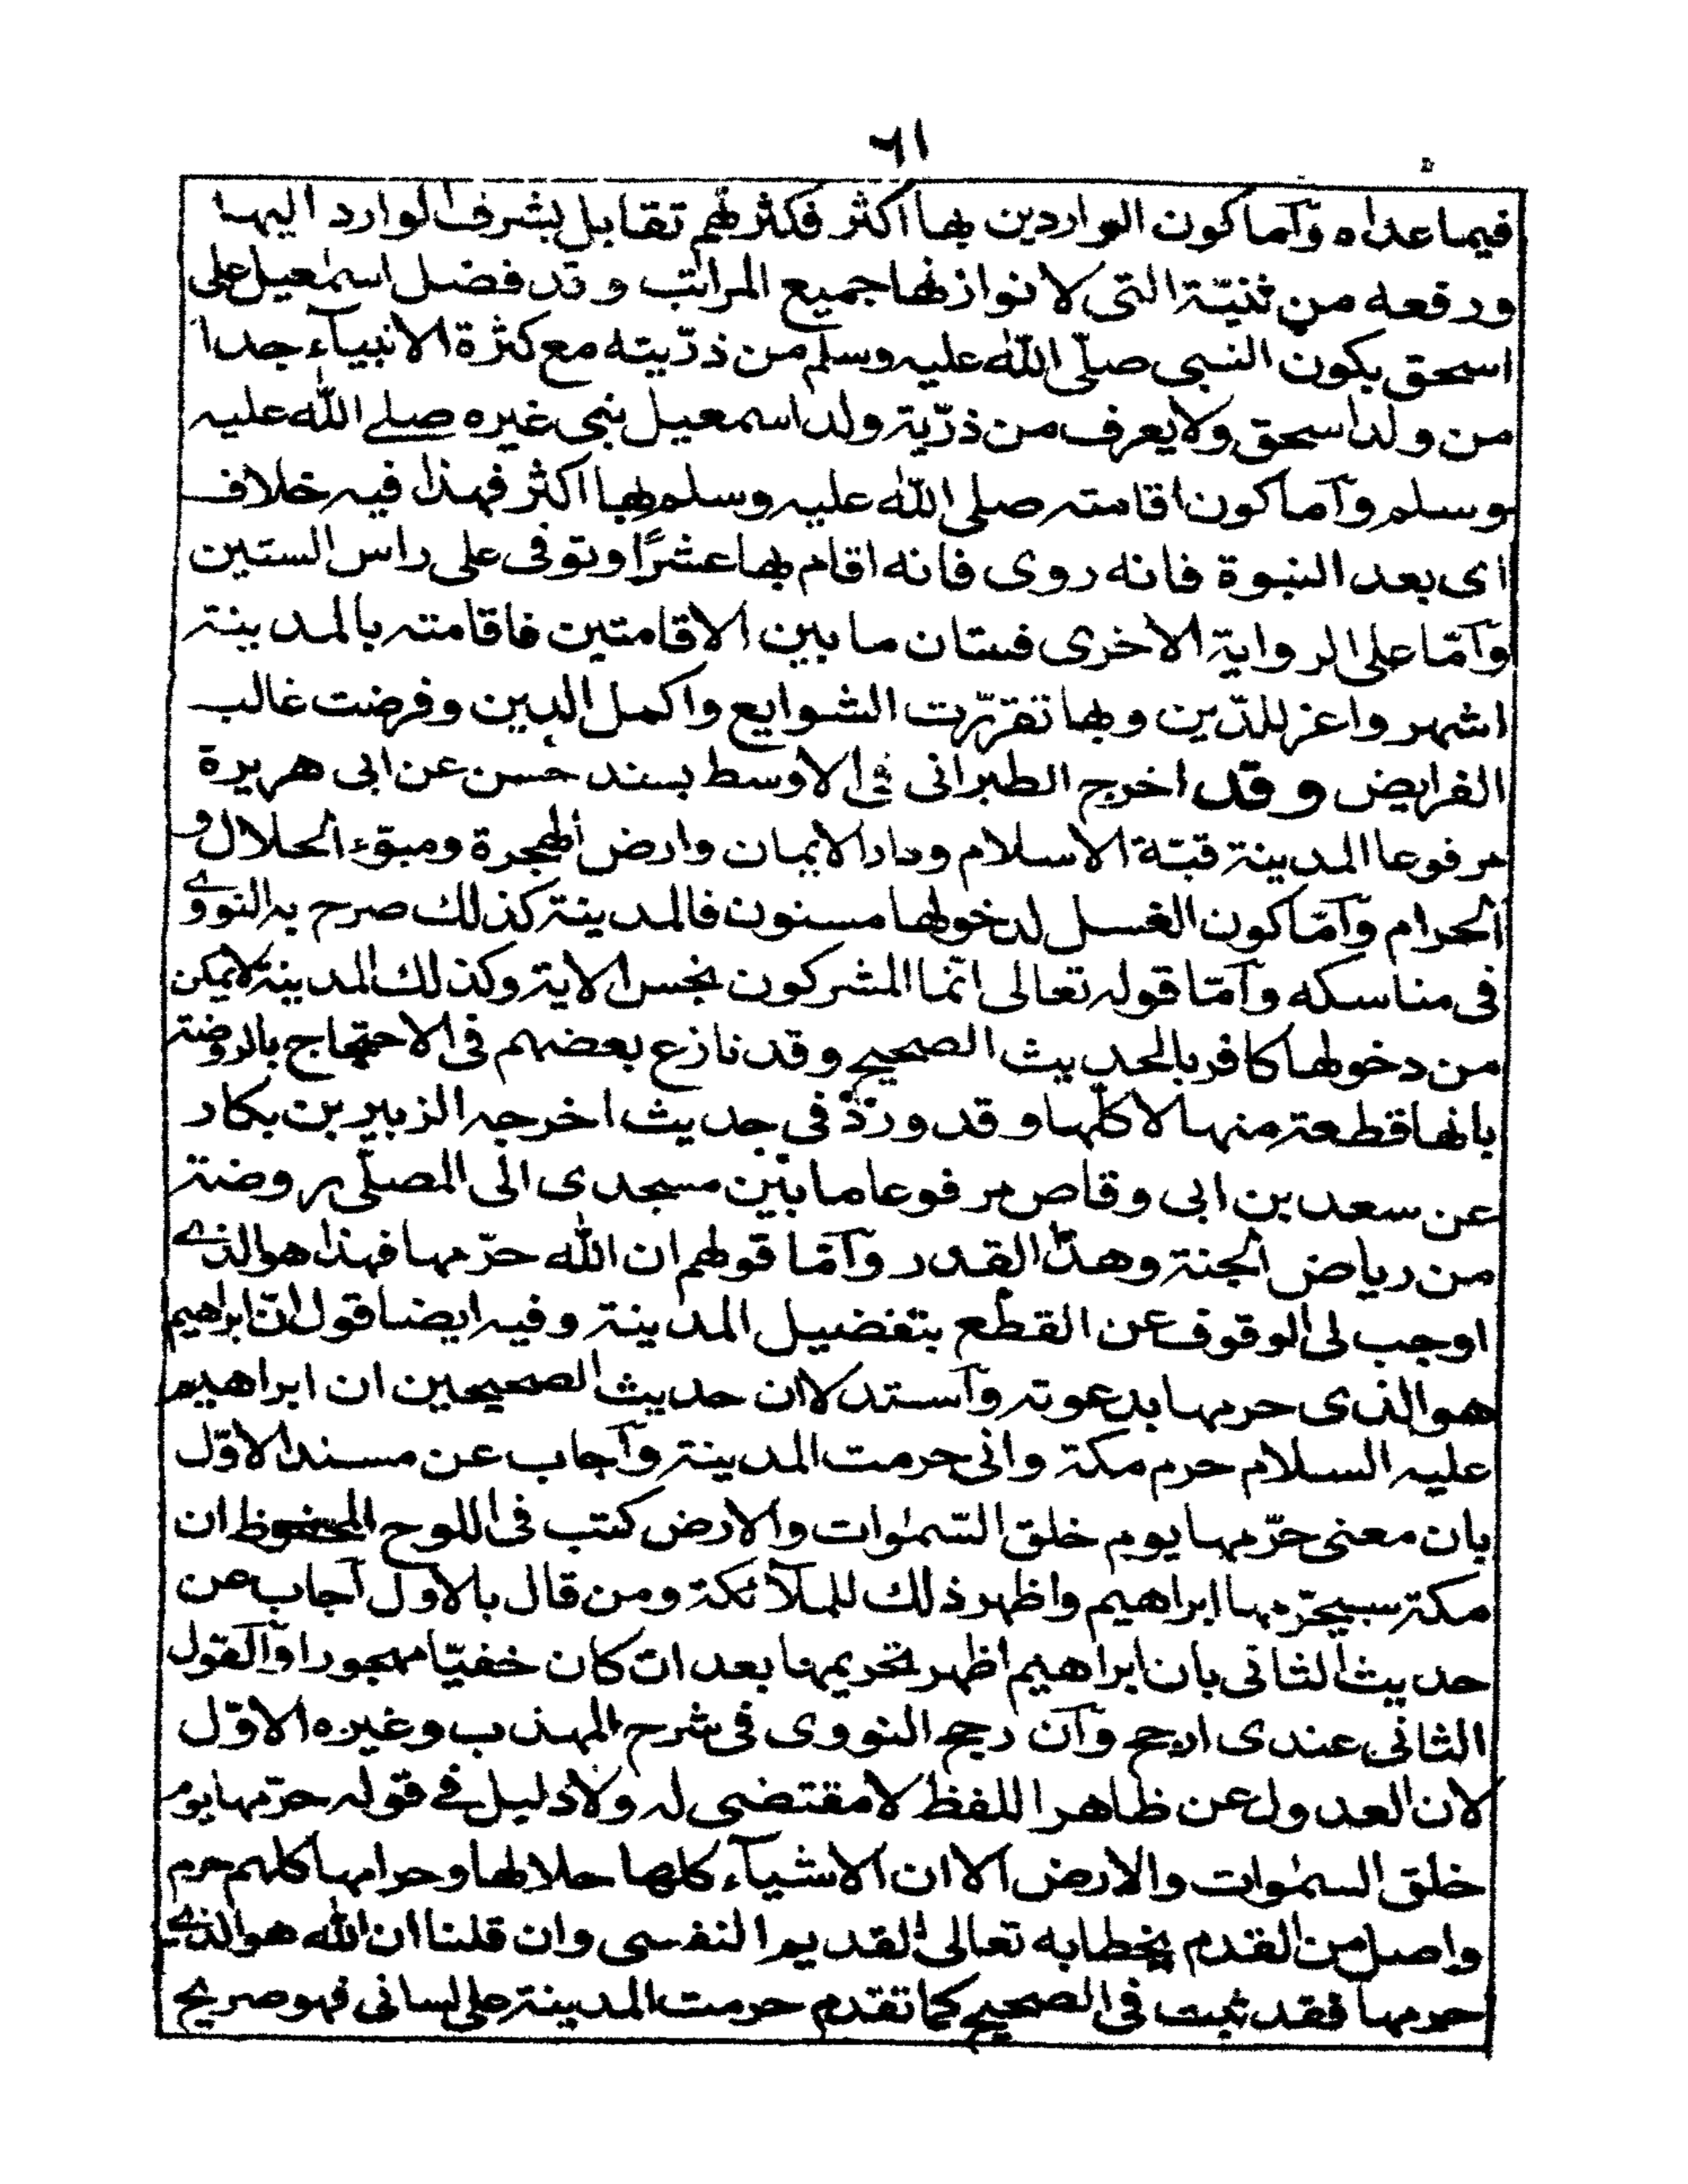 ٦١
فيما عداه وآما كون الواردين بها اكثر فكثرتهم تقابل بشرف الوارد اليها
ورفعه من ثنيّة التى لا نوازنها جميع المراتب وقد فضل اسمٰعيل على
اسحق بكون النبى صلّى اللّٰه عليه وسلم من ذرّيته مع كثرة الانبيآء جدا
من ولد اسحق ولا يعرف من ذرّية ولد اسمعيل نبى غيره صلے اللّٰه عليه
وسلم وآما كون اقامته صلى اللّٰه عليه وسلم بها اكثر فهذا فيه خلاف
اى بعد النبوة فانه روى فانه اقام بها عشرًا وتوفى على راس الستين
وآمّا على الرواية الاخرى فستان ما بين الاقامتين فاقامته بالمدينة
اشهر واعز للدّين وبها تقرّرت الشوايع واكمل الدين وفرضت غالب
الفرايض وقد اخرج الطبرانى فى الاوسط بسند حسن عن ابى هريرة
مرفوعا المدينة قبّة الاسلام ودار الايمان وارض الهجرة ومبوّء الحلال و
الحرام وآمّا كون الغسل لدخولها مسنون فالمدينة كذلك صرح به النووے
فى مناسكه وآمّا قوله تعالى انّما المشركون نجس الاية وكذلك المدينة لا يمكن
من دخولها كافر بالحديث الصحيح وقد نازع بعضهم فى الاحتجاج بالروضة
بانها قطعة منها لا كلّها وقد ورد فى حديث اخرجه الزبير بن بكار
عن سعد بن ابى وقاص مرفوعا ما بين مسجدى الى المصلّى روضة
من رياض الجنة وهذا القدر وآمّا قولهم ان اللّٰه حرّمها فهذا هو الذے
اوجب لى الوقوف عن القطع بتفضيل المدينة وفيه ايضا قول انّ ابراهيم
هو الذى حرمها بدعوته وآستدلا ان حديث الصحيحين ان ابراهيم
عليه السلام حرم مكة وانى حرمت المدينة وآجاب عن مسند الاوّل
بان معنى حرّمها يوم خلق السّمٰوات والارض كتب فى اللوح المحفوظ ان
مكة سيحرّمها ابراهيم واظهر ذلك للملآئكة ومن قال بالاول آجاب عن
حديث الثانى بان ابراهيم اظهر تحريمها بعد ان كان خفيّا مهجورا وآلقول
الثانى عندى ارجح وآن رجح النووى فى شرح المهذب وغيره الاوّل
لان العدول عن ظاهر اللفظ لا مقتضى له ولا دليل فے قوله حرّمها يوم
خلق السمٰوات والارض الا ان الاشيآء كلها حلالها وحرامها كلهم حرم
واصل من القدم بخطابه تعالى القديم النفسى وان قلنا ان اللّٰه هو الذے
حرمها فقد ثبت فى الصحيح كما تقدم حرمت المدينة على لسانى فهو صريح